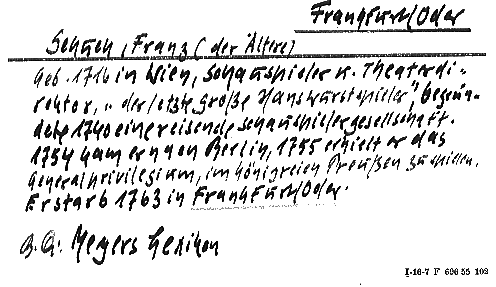 Frankfurt/Oder
Schuch, Franz (der Ältere)
Geb. 1716 in Wien, Schauspieler u. Theaterdi-
rektor, "der letzte große Hanswurstspieler", begrün-
dete 1740 eine reisende Schauspielergesellschaft.
1754 kam er nach Berlin, 1755 erhielt er das
Generalprivilegium, im Königreich Preußen zu spielen.
Er starb 1763 in Frankfurt/Oder.
Meyers Lexikon
I-16-7 F 696 55 102